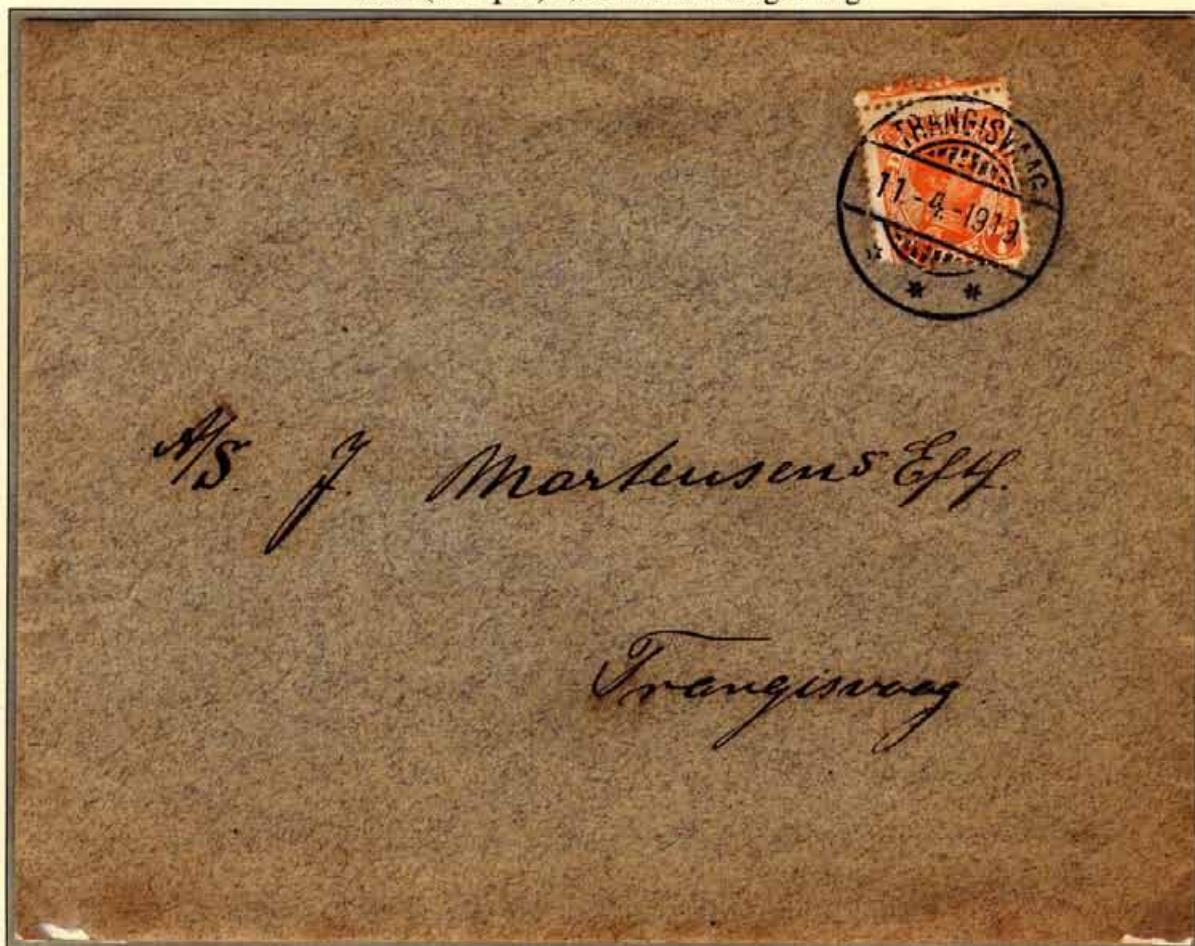 TRANGISVAAG
11.-4.-1919
A/S. J. Mortensens Eftf.
Trangisvaag